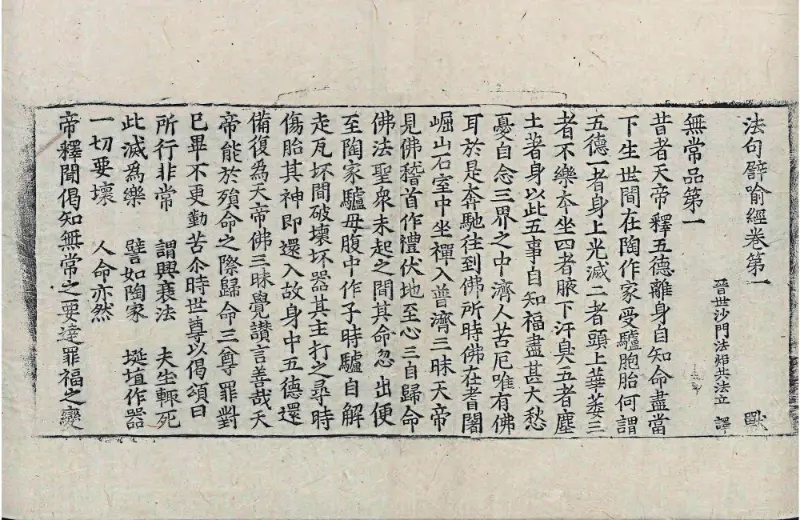 法句譬喻經卷第一
晉世沙門法炬共法立 譯
無常品第一
昔者天帝釋五德離身自知命盡當
下生世間在陶作家受驢胞胎何謂
五德一者身上光滅二者頭上華萎三
者不樂夲坐四者腋下汗臭五者塵
土著身以此五事自知福盡甚大愁
憂自念三界之中濟人苦厄唯有佛
耳於是奔馳往到佛所時佛在耆闍
崛山石室中坐禪入普濟三昧天帝
見佛稽首作禮伏地至心三自歸命
佛法聖衆未起之間其命忽出便
至陶家驢母腹中作子時驢自解
走瓦坏間破壞坏器其主打之尋時
傷胎其神即還入故身中五德還
備復爲天帝佛三昧覺讃言善哉天
帝能於殞命之際歸命三尊罪對
已畢不更勤苦尒時世尊以偈頌曰
所行非常 謂興衰法 夫生輒死
此滅爲樂 譬如陶家 埏埴作器
一切要壞 人命亦然
帝釋聞偈知無常之要達罪福之變